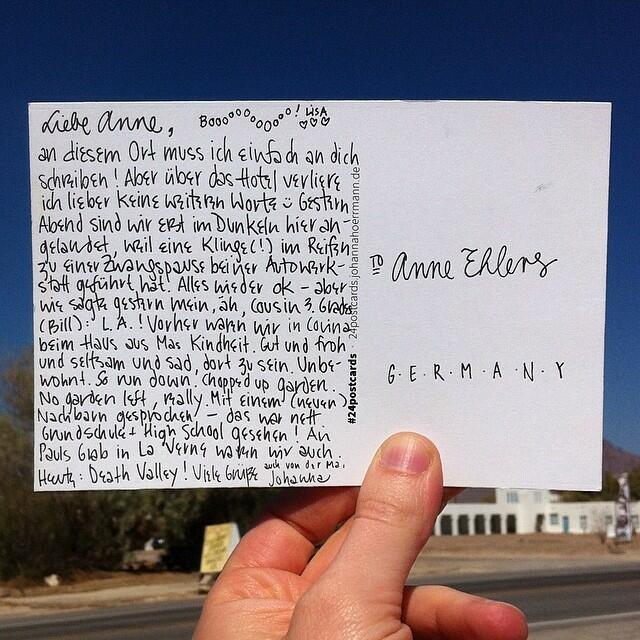 Liebe Anne,
Booooooooooo! LISA
an diesem Ort muss ich einfach an dich
schreiben! Aber über das Hotel verliere
ich lieber keine weiteren Worte ü Gestern
Abend sind wir erst im Dunkeln hier an-
gelandet, weil eine Klinge(!) im Reifen
zu einer Zwangspause bei 'ner Autowerk-
statt geführt hat! Alles wieder ok – aber
wie sagte gestern mein, äh, Cousin 3. Grades
(Bill): L.A.! Vorher waren wir in Covina
beim Haus aus Mas Kindheit. Gut und froh
und seltsam und sad, dort zu sein. Unbe-
wohnt. So run down. Chopped up garden.
No garden left, really. Mit einem (neuen)
Nachbarn gesprochen – das war nett.
Grundschule + High School gesehen! An
Pauls Grab in La Verne waren wir auch.
Heute: Death Valley! Viele Grüße auch von der Ma,
Johanna
#24postcards · 24postcards.johannahoerrmann.de
TO Anne Ehlers
G·E·R·M·A·N·Y